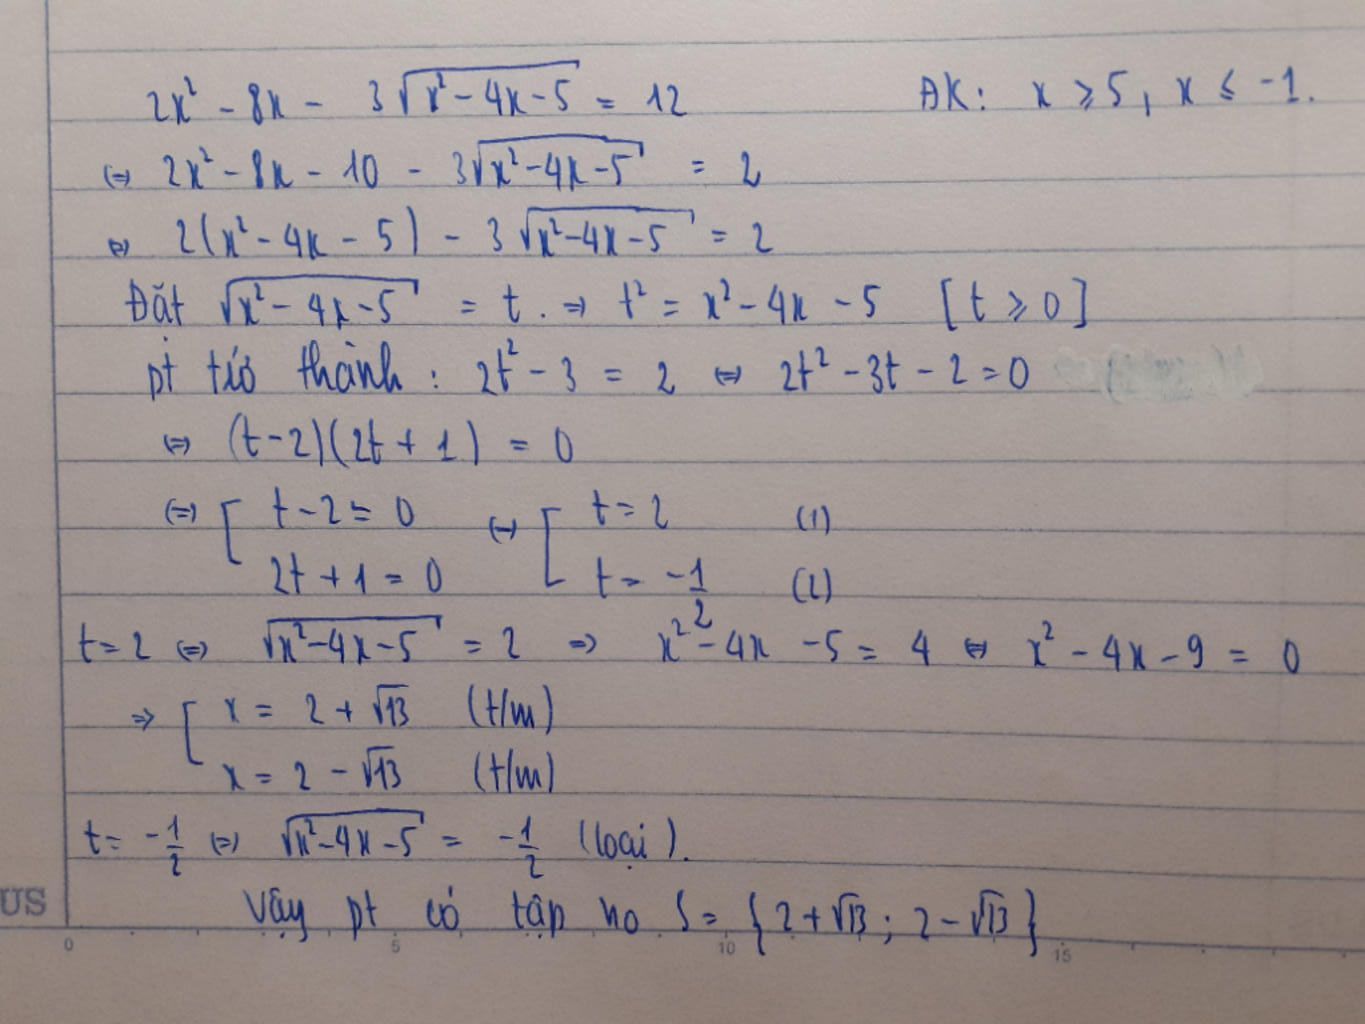 2x² - 8x - 3√(x² - 4x - 5) = 12 ĐK: x ≥ 5, x ≤ -1.
(=) 2x² - 8x - 10 - 3√(x² - 4x - 5) = 2
(=) 2(x² - 4x - 5) - 3√(x² - 4x - 5) = 2
Đặt √(x² - 4x - 5) = t. => t² = x² - 4x - 5 [t ≥ 0]
pt trở thành: 2t² - 3 = 2 (=) 2t² - 3t - 2 = 0
(=) (t - 2)(2t + 1) = 0
(=) [ t - 2 = 0 (=) [ t = 2 (1)
2t + 1 = 0 t = -1/2 (2)
t = 2 (=) √(x² - 4x - 5) = 2 => x² - 4x - 5 = 4 (=) x² - 4x - 9 = 0
=> [ x = 2 + √13 (t/m)
x = 2 - √13 (t/m)
t = -1/2 (=) √(x² - 4x - 5) = -1/2 (loại).
Vậy pt có tập no S = {2 + √13; 2 - √13}
US
0 5 10 15